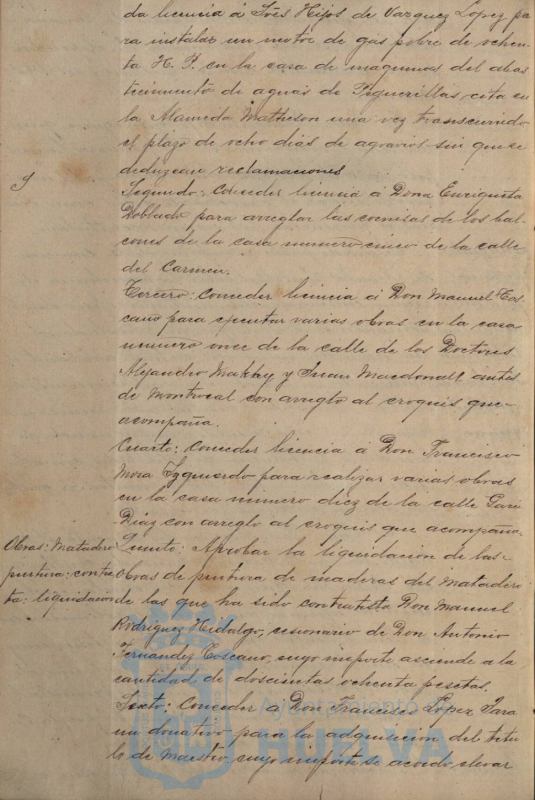 da licencia á Tres Hijos de Vazquez Lopez pa
ra instalar un motor de gas pobre de ochen
ta H. P. en la casa de maquinas del abas
tecimiento de aguas de Peguerillas cita en
la Alameda Matheson una vez transcurrido
el plazo de ocho dias de agravios sin que se
deduzcan reclamaciones
Segundo: Conceder licencia á Doña Enriqueta
Doblado para arreglar las cornisas de los bal
cones de la casa numero cinco de la calle
del Carmen.
Tercero: Conceder licencia á Don Manuel Tos
cano para ejecutar varias obras en la casa
numero once de la calle de los Doctores
Alejandro Makhy y Juan Macdonall, antes
de Montrocal con arreglo al croquis que
acompaña.
Cuarto: Conceder licencia á Don Francisco
Mora Yzquierdo para realizar varias obras
en la casa numero diez de la calle Garci
Diaz con arreglo al croquis que acompaña.
Obras: Matadero
pintura: contra
ta: liquidacion
Quinto: Aprobar la liquidacion de las
obras de pintura de maderas del matadero
de las que ha sido contratista Don Manuel
Rodriguez Hidalgo, cesionario de Don Antonio
Fernandez Toscano, cuyo importe asciende a la
cantidad de doscientas ochenta pesetas.
Sexto: Conceder á Don Francisco Lopez Jara
un donativo para la adquisicion del titu
lo de Maestro, cuyo importe se acordó elevar
Ayuntamiento de
HUELVA